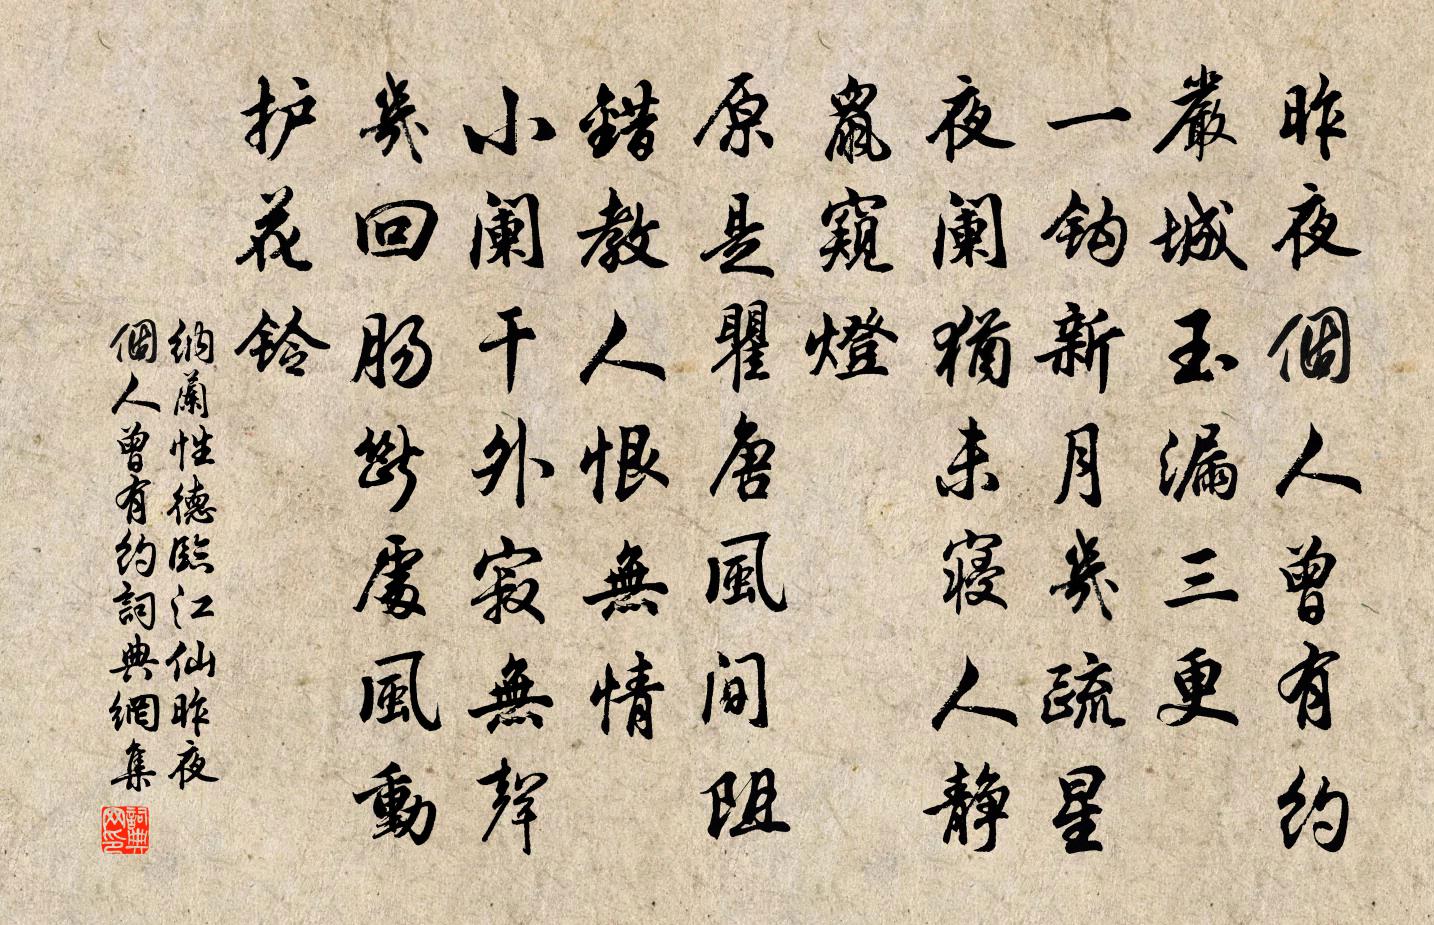 昨夜個人曾有約
嚴城玉漏三更
一鈎新月幾疏星
夜阑猶未寝人靜
鼠窺燈
原是瞿唐風间阻
錯教人恨無情
小阑干外寂無聲
幾回肠斷處風動
护花鈴
納蘭性德臨江仙昨夜
個人曾有約詞典網集
詞典
网印